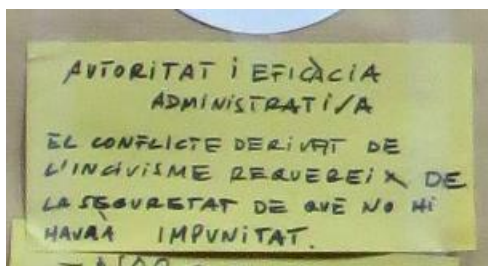 AUTORITAT i EFICÀCIA
ADMINISTRATIVA
EL CONFLICTE DERIVAT DE
L'INCIVISME REQUEREIX DE
LA SEGURETAT DE QUE NO HI
HAURÀ IMPUNITAT.